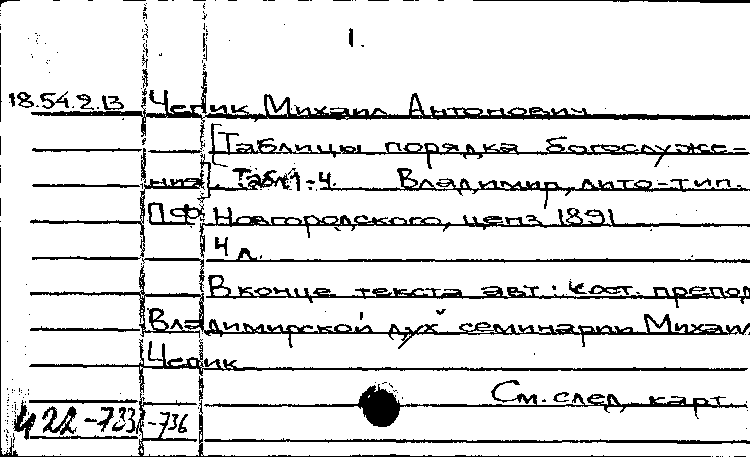 1.
18.54.2.13 Чепик, Михаил Антонович
[Таблицы порядка богослуже-
ния]. Табл 1-4. Владимир, лито-тип.
ПФ Новгородского, ценз. 1891
4 л.
В конце текста авт.: сост. препод
Владимирской дух. семинарии Михаил
Чепик
См. след. карт.
Ч 22-733 -736